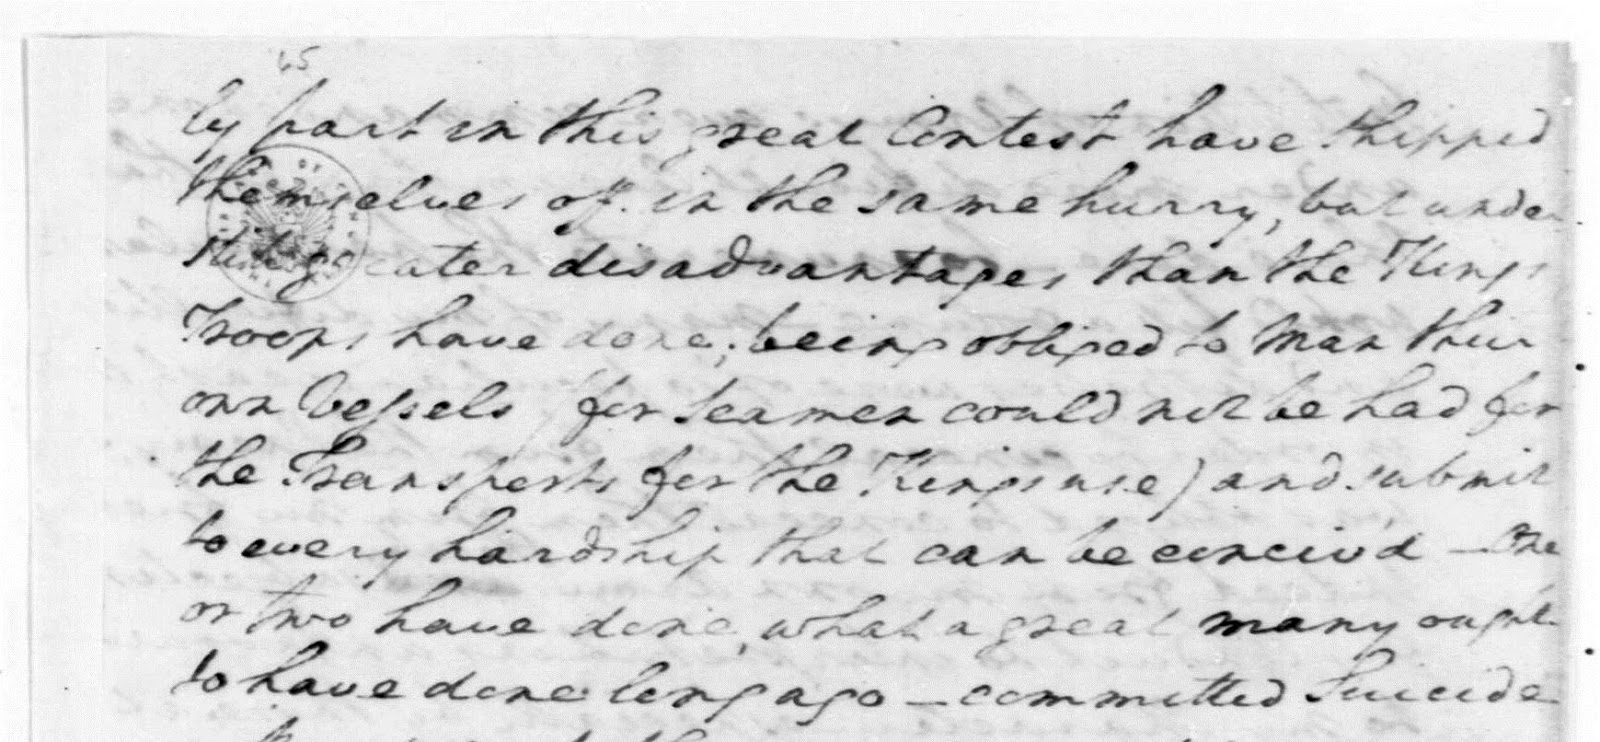 65
ly part in this great Contest have shipped
themselves off in the same hurry, but under
still greater disadvantages than the Kings
Troops have done; being obliged to Man their
own Vessels (for Seamen could not be had for
the Transports for the Kings use) and submit
to every hardship that can be conceiv'd — One
or two have done, what a great many ought
to have done long ago — committed Suicide